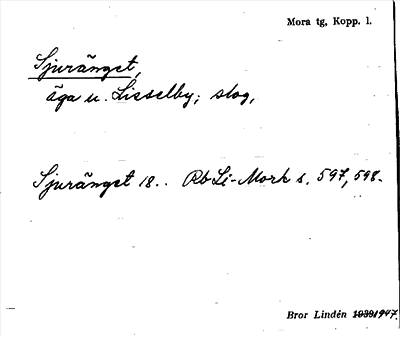 Mora tg, Kopp. l.
Sjuränget,
äga u. Lisselby; slog,
Sjuränget 18.. Rb Li-Mork s. 597, 598.
Bror Lindén 1939 1947.